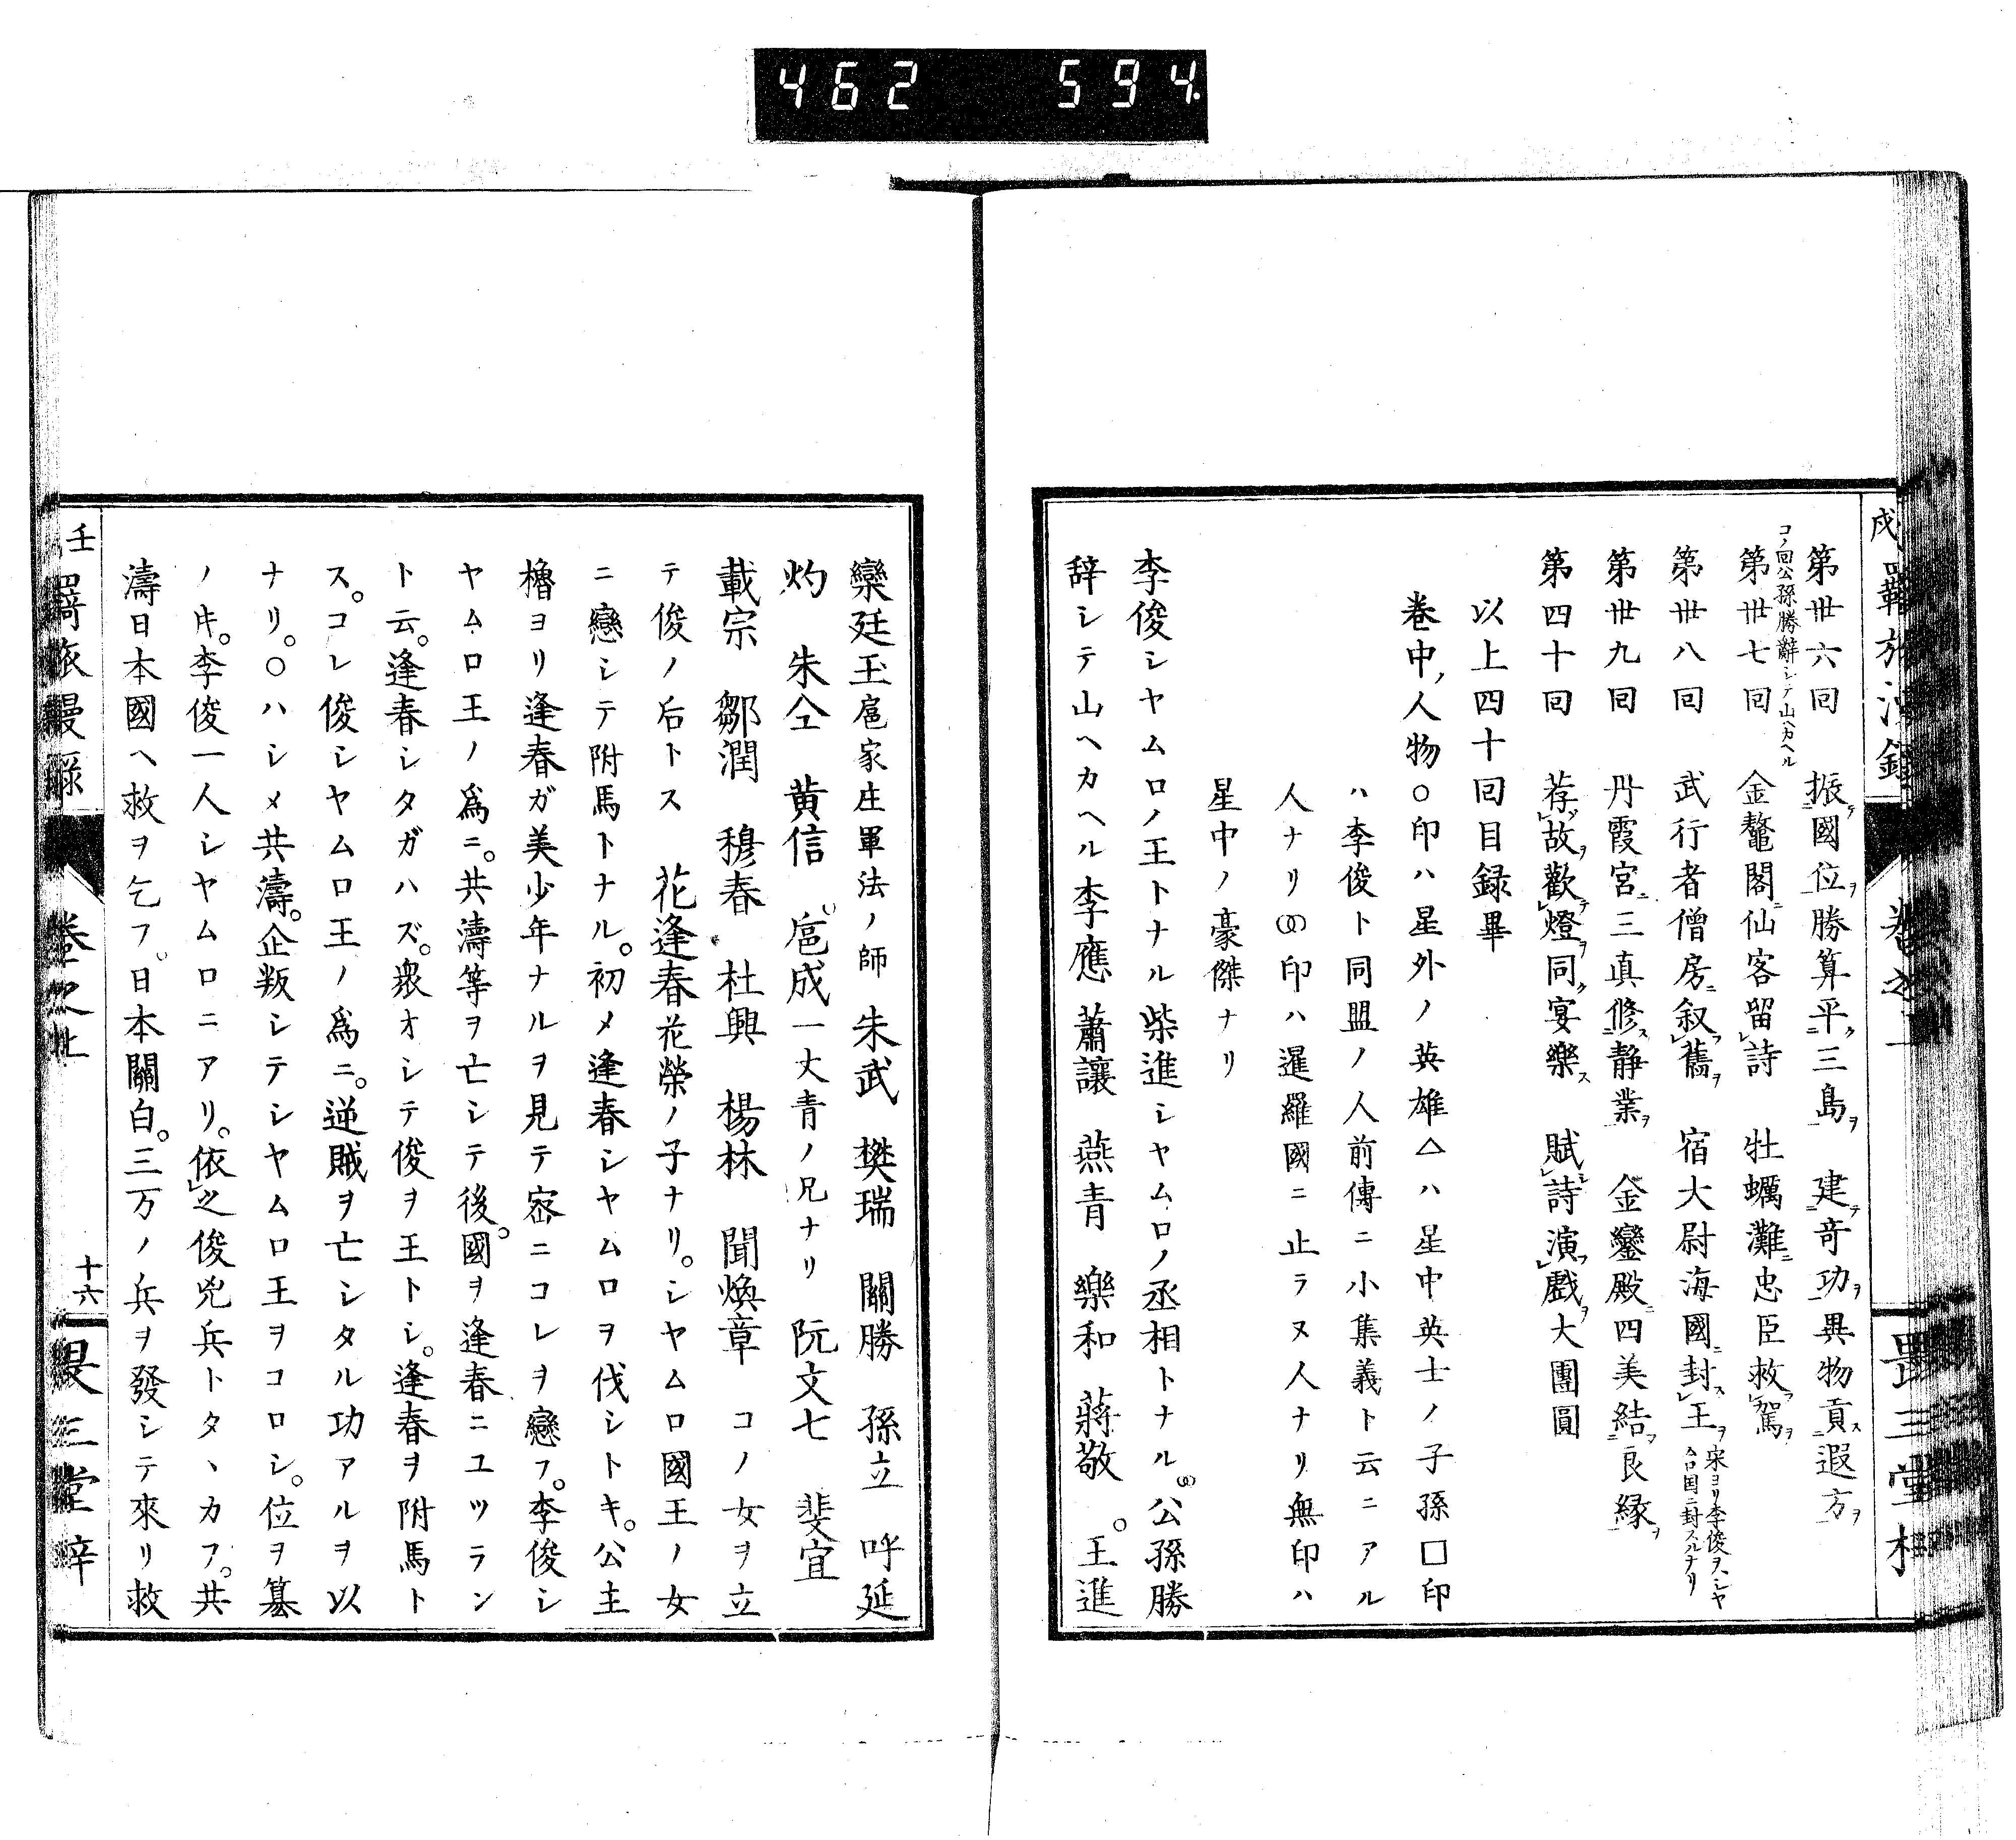 462 594
第丗六回 振國位勝算平三島 建竒功異物貢遐方
コノ回公孫勝辭シテ山ヘカヘル
第丗七回 金鼇閣仙客留詩 牡蠣灘忠臣救駕
第丗八回 武行者僧房叙舊 宿大尉海國封王 宋ヨリ李俊ヲシヤムロ国ニ封スルナリ
第丗九回 丹霞宮三真修静業 金鑾殿四美結良縁
第四十回 荐故歡燈同宴樂 賦詩演戲大團圓
以上四十回目録畢
巻中ノ人物○印ハ星外ノ英雄△ハ星中英士ノ子孫□印
ハ李俊ト同盟ノ人前傳ニ小集義ト云ニアル
人ナリ㊈印ハ暹羅國ニ止ラヌ人ナリ無印ハ
星中ノ豪傑ナリ
李俊シヤムロノ王トナル柴進シヤムロノ丞相トナル。公孫勝
辞シテ山ヘカヘル李應 蕭讓 燕青 樂和 蔣敬 。王進
欒廷玉扈家庄軍法ノ師 朱武 樊瑞 關勝 孫立 呼延
灼 朱仝 黄信 扈成一丈青ノ兄ナリ 阮文七 斐宜
載宗 鄒潤 穆春 杜興 楊林 聞煥章 コノ女ヲ立
テ俊ノ后トス 花逢春花榮ノ子ナリ。シヤムロ國王ノ女
ニ戀シテ附馬トナル。初メ逢春シヤムロヲ伐シトキ。公主
櫓ヨリ逢春ガ美少年ナルヲ見テ密ニコレヲ戀フ。李俊シ
ヤムロ王ノ爲ニ。共濤等ヲ亡シテ後。國ヲ逢春ニユツラン
ト云。逢春シタガハズ。衆オシテ俊ヲ王トシ。逢春ヲ附馬ト
ス。コレ俊シヤムロ王ノ爲ニ。逆賊ヲ亡シタル功アルヲ以
ナリ。○ハシメ共濤。企叛シテシヤムロ王ヲコロシ。位ヲ簒
ノ片。李俊一人シヤムロニアリ。依之俊兇兵トタヽカフ。共
濤日本國ヘ救ヲ乞フ。日本關白。三万ノ兵ヲ發シテ來リ救
壬 羇旅漫録 巻之 十六 畏三堂梓